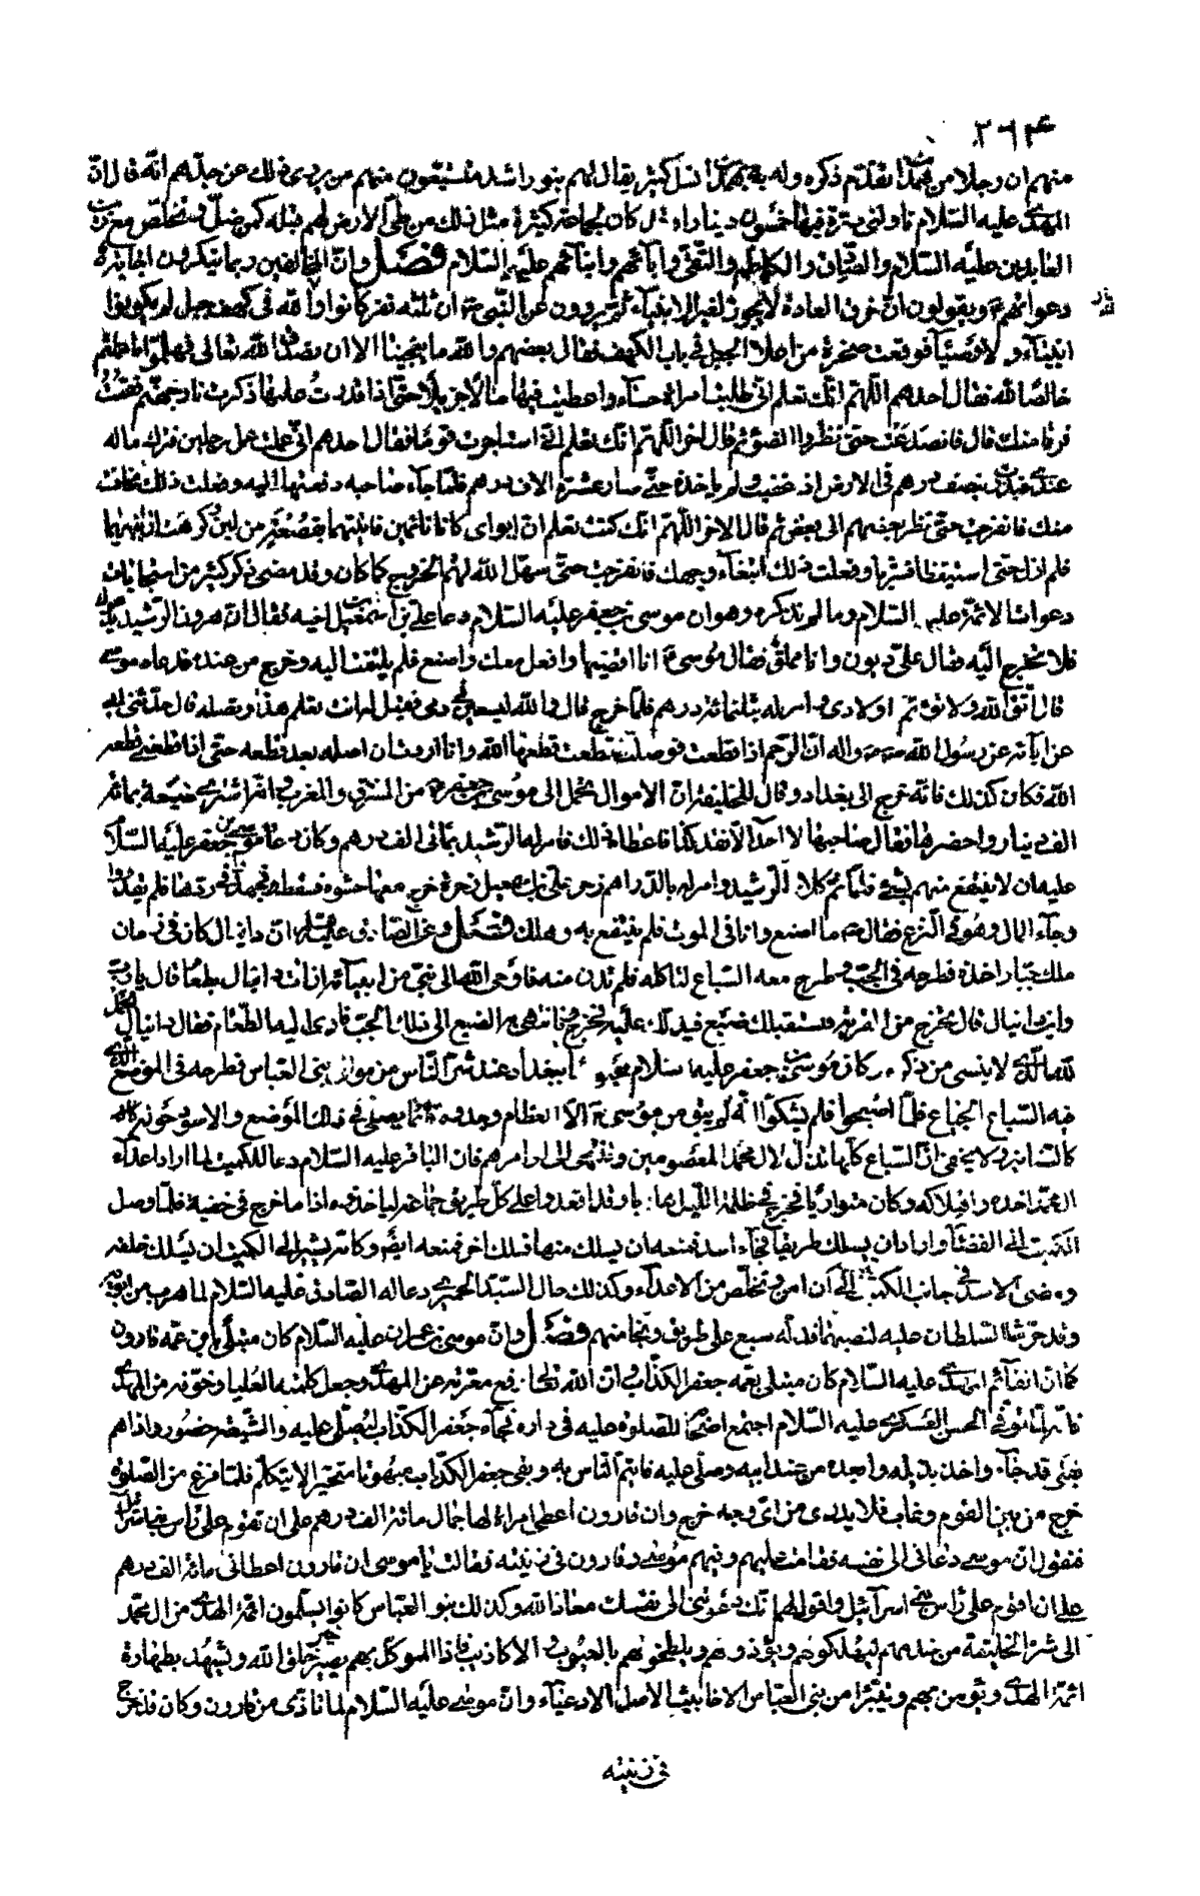 ٢٦٤
منهم ان رجلا من همدان تقدم ذكره وله بهمدان نسل كثير يقال لهم بنو راشد متشيعون منهم من يروى ذلك عن جدهم انه قال ان
المهدى عليه السلام ناولنى صرة فيها خمسون دينارا كان لجماعة كثيرة مثل ذلك من طى الارض لهم قبله كمن ضل فتخلص معه زين
العابدين عليه السلام والصادق والكاظم والتقى وآبائهم وابنائهم عليهم السلام فصل وان المخالفين ربما ينكرون اجابة
دعواتهم ويقولون ان خرق العادة لا يجوز لغير الانبياء ثم يروون عن النبى ان ثلثة نفر كانوا والله فى كهف جبل لم يكونوا
انبياء ولا اوصياء فوقعت صخرة من اعلا الجبل فى باب الكهف فقال بعضهم والله ما ينجينا الا ان نصدق الله تعالى فهلموا ما عملتم
خالصا لله فقال احدهم اللهم انك تعلم انى طلبت امراة حسناء واعطيت فيها مالا جزيلا حتى اذا قدرت عليها ذكرت نار جهنم فقمت
فرقا منك قال فانصدعت حتى نظروا الضوء ثم قال اخر اللهم انك تعلم انى استاجرت قوما فقال احدهم انى عملت عمل رجلين فترك ماله
عندى فبذرت بنصف درهم فى الارض اذ غضب ولم ياخذه حتى صار عشرة الاف درهم فلما جاء صاحبه دفعتها اليه وفعلت ذلك مخافة
منك فانفرجت حتى نظر بعضهم الى بعض ثم قال الاخر اللهم انك كنت تعلم ان ابواى كانا نائمين فاتيتهما بقصعة من لبن فكرهت ان انبههما
فلم ازل حتى استيقظا فشربا وفعلت ذلك ابتغاء وجهك فانفرجت حتى سهل الله لهم الخروج كما كان وقد مضى ذكر كثير من استجابات
دعوات الائمة عليهم السلام وما لم نذكره وهو ان موسى بن جعفر عليه السلام دعا على بن اسمعيل اخيه فقال ان هرون الرشيد يدعوك
فلا تخرج اليه فقال على ديون وانا مملق فقال موسى انا اقضيها وافعل معك واصنع فلم يلتفت اليه وخرج من عنده فدعاه موسى
قال اتق الله ولا توتم اولادى وامر له بثلثمائة درهم فلما خرج قال والله ليسعين فى دمى فقيل له انت تعلم هذا وتصله قال حدثنى ابى
عن آبائه عن رسول الله صلى الله عليه واله ان الرحم اذا قطعت فوصلت فقطعت قطعها الله وانا اردت ان اصله بعد قطعه حتى اذا قطعنى قطعه
الله فكان كذلك فانه خرج الى بغداد وقال للخليفة ان الاموال تحمل الى موسى بن جعفر من المشرق والمغرب اشترى ضيعة بمائة
الف دينار واحضرها فقال صاحبها لا اخذ الا نقد كذا فاعطاه ذلك فامر له الرشيد بمائى الف درهم وكان دعا موسى بن جعفر عليه السلام
عليه ان لا ينتفع منهم بشئ فلما تم كلامه الرشيد وامر له بالدراهم زحر على بن اسمعيل زحرة خرج معها حشوه فسقط فجهدوا فى ردها فلم يقدروا
وجاء المال وهو فى النزع فقال ما اصنع وانا فى الموت فلم ينتفع به وهلك فصل وعن الصادق عليه السلام ان دانيال كان فى زمان
ملك جبار اخذه فطرحه فى الجب وطرح معه السباع لتاكله فلم تدن منه فاوحى الله الى نبى من انبيائه ان ائت دانيال بطعام قال يا رب
واين دانيال قال تخرج من القرية فيستقبلك ضبع فيدلك عليه فخرج فانتهى به الضبع الى ذلك الجب فادلى اليه الطعام فقال دانيال الحمد
لله الذى لا ينسى من ذكره وكان موسى بن جعفر عليهما سلام ببغداد عند شر الناس من موالى بنى العباس فطرحه فى الموضع الذى
فيه السباع الجياع فلما اصبحوا فلم يشكوا انه لم يبق من موسى الا العظام وجدوه قائما يصلى فى ذلك الموضع والاسود حوله
كالسنانير ولا يخفى ان السباع كلها تذل لال محمد المعصومين وتنتهى الى اوامرهم فان الباقر عليه السلام دعا للكميت لما اراد اعداء
ال محمد اخذه واهلاكه وكان متواريا فخرج فى ظلمة الليل هاربا وقد اقعدوا على كل طريق جماعة لياخذوه اذا ما خرج فى خفية فلما وصل
الكميت الى الفضاء واراد ان يسلك طريقا فجاء اسد فمنعه ان يسلك منها فسلك اخر فمنعه ايضا وكانه يشير الى الكميت ان يسلك خلفه
ومضى الاسد فى جانب الكميت الى ان امن وتخلص من الاعداء وكذلك حال السيد الحميرى دعا له الصادق عليه السلام لما هرب من ابويه
وقد حرشا السلطان عليه لنصبهما فدله سبع على طريق ونجا منهم فصل وان موسى بن عمران عليه السلام كان مبتلى بابن عمه قارون
كما ان القائم المهدى عليه السلام كان مبتلى بعمه جعفر الكذاب ان الله تعالى دفع معرته عن المهدى وجعل كلمته العليا وخوفه من المهدى
فانه لما توفى الحسن العسكرى عليه السلام اجتمع اصحابنا للصلوة عليه فى داره فجاء جعفر الكذاب ليصلى عليه والشيعة حضور واذا هم
بفتى قد جاء واخذ بذيله وابعده من عند ابيه وصلى عليه فايتم الناس به وبقى جعفر الكذاب مبهوتا متحيرا لا يتكلم فلما فرغ من الصلوة
خرج من بين القوم وغاب فلا يدرى من اى وجه خرج وان قارون اعطى امراة لها جمال مائة الف درهم على ان تقوم على راس بنى اسرائيل
فتقول ان موسى دعانى الى نفسه فقامت عليهم وفيهم موسى وقارون فى زينته فقالت يا موسى ان قارون اعطانى مائة الف درهم
على ان اقوم على راس بنى اسرائيل واقول لهم انك دعوتنى الى نفسك معاذ الله وكذلك بنو العباس كانوا يسلمون ائمة الهدى من ال محمد
الى شر الخليقة من خدمهم ليهلكوهم ويؤذوهم ويلطخوهم بالعيوب الاكاذيب فاذا الموكل بهم يصير خير خلق الله ويشهد بطهارة
ائمة الهدى ويؤمن بهم ويتبرا من بنى العباس الاخابيث الاصل الادعياء وان موسى عليه السلام لما تاذى من قارون وكان قد خرج
فى زينته